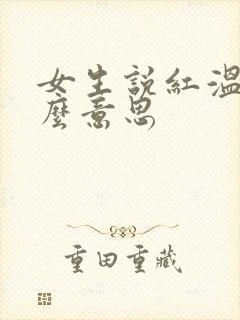 女生説紅溫
麼意思
重田重藏